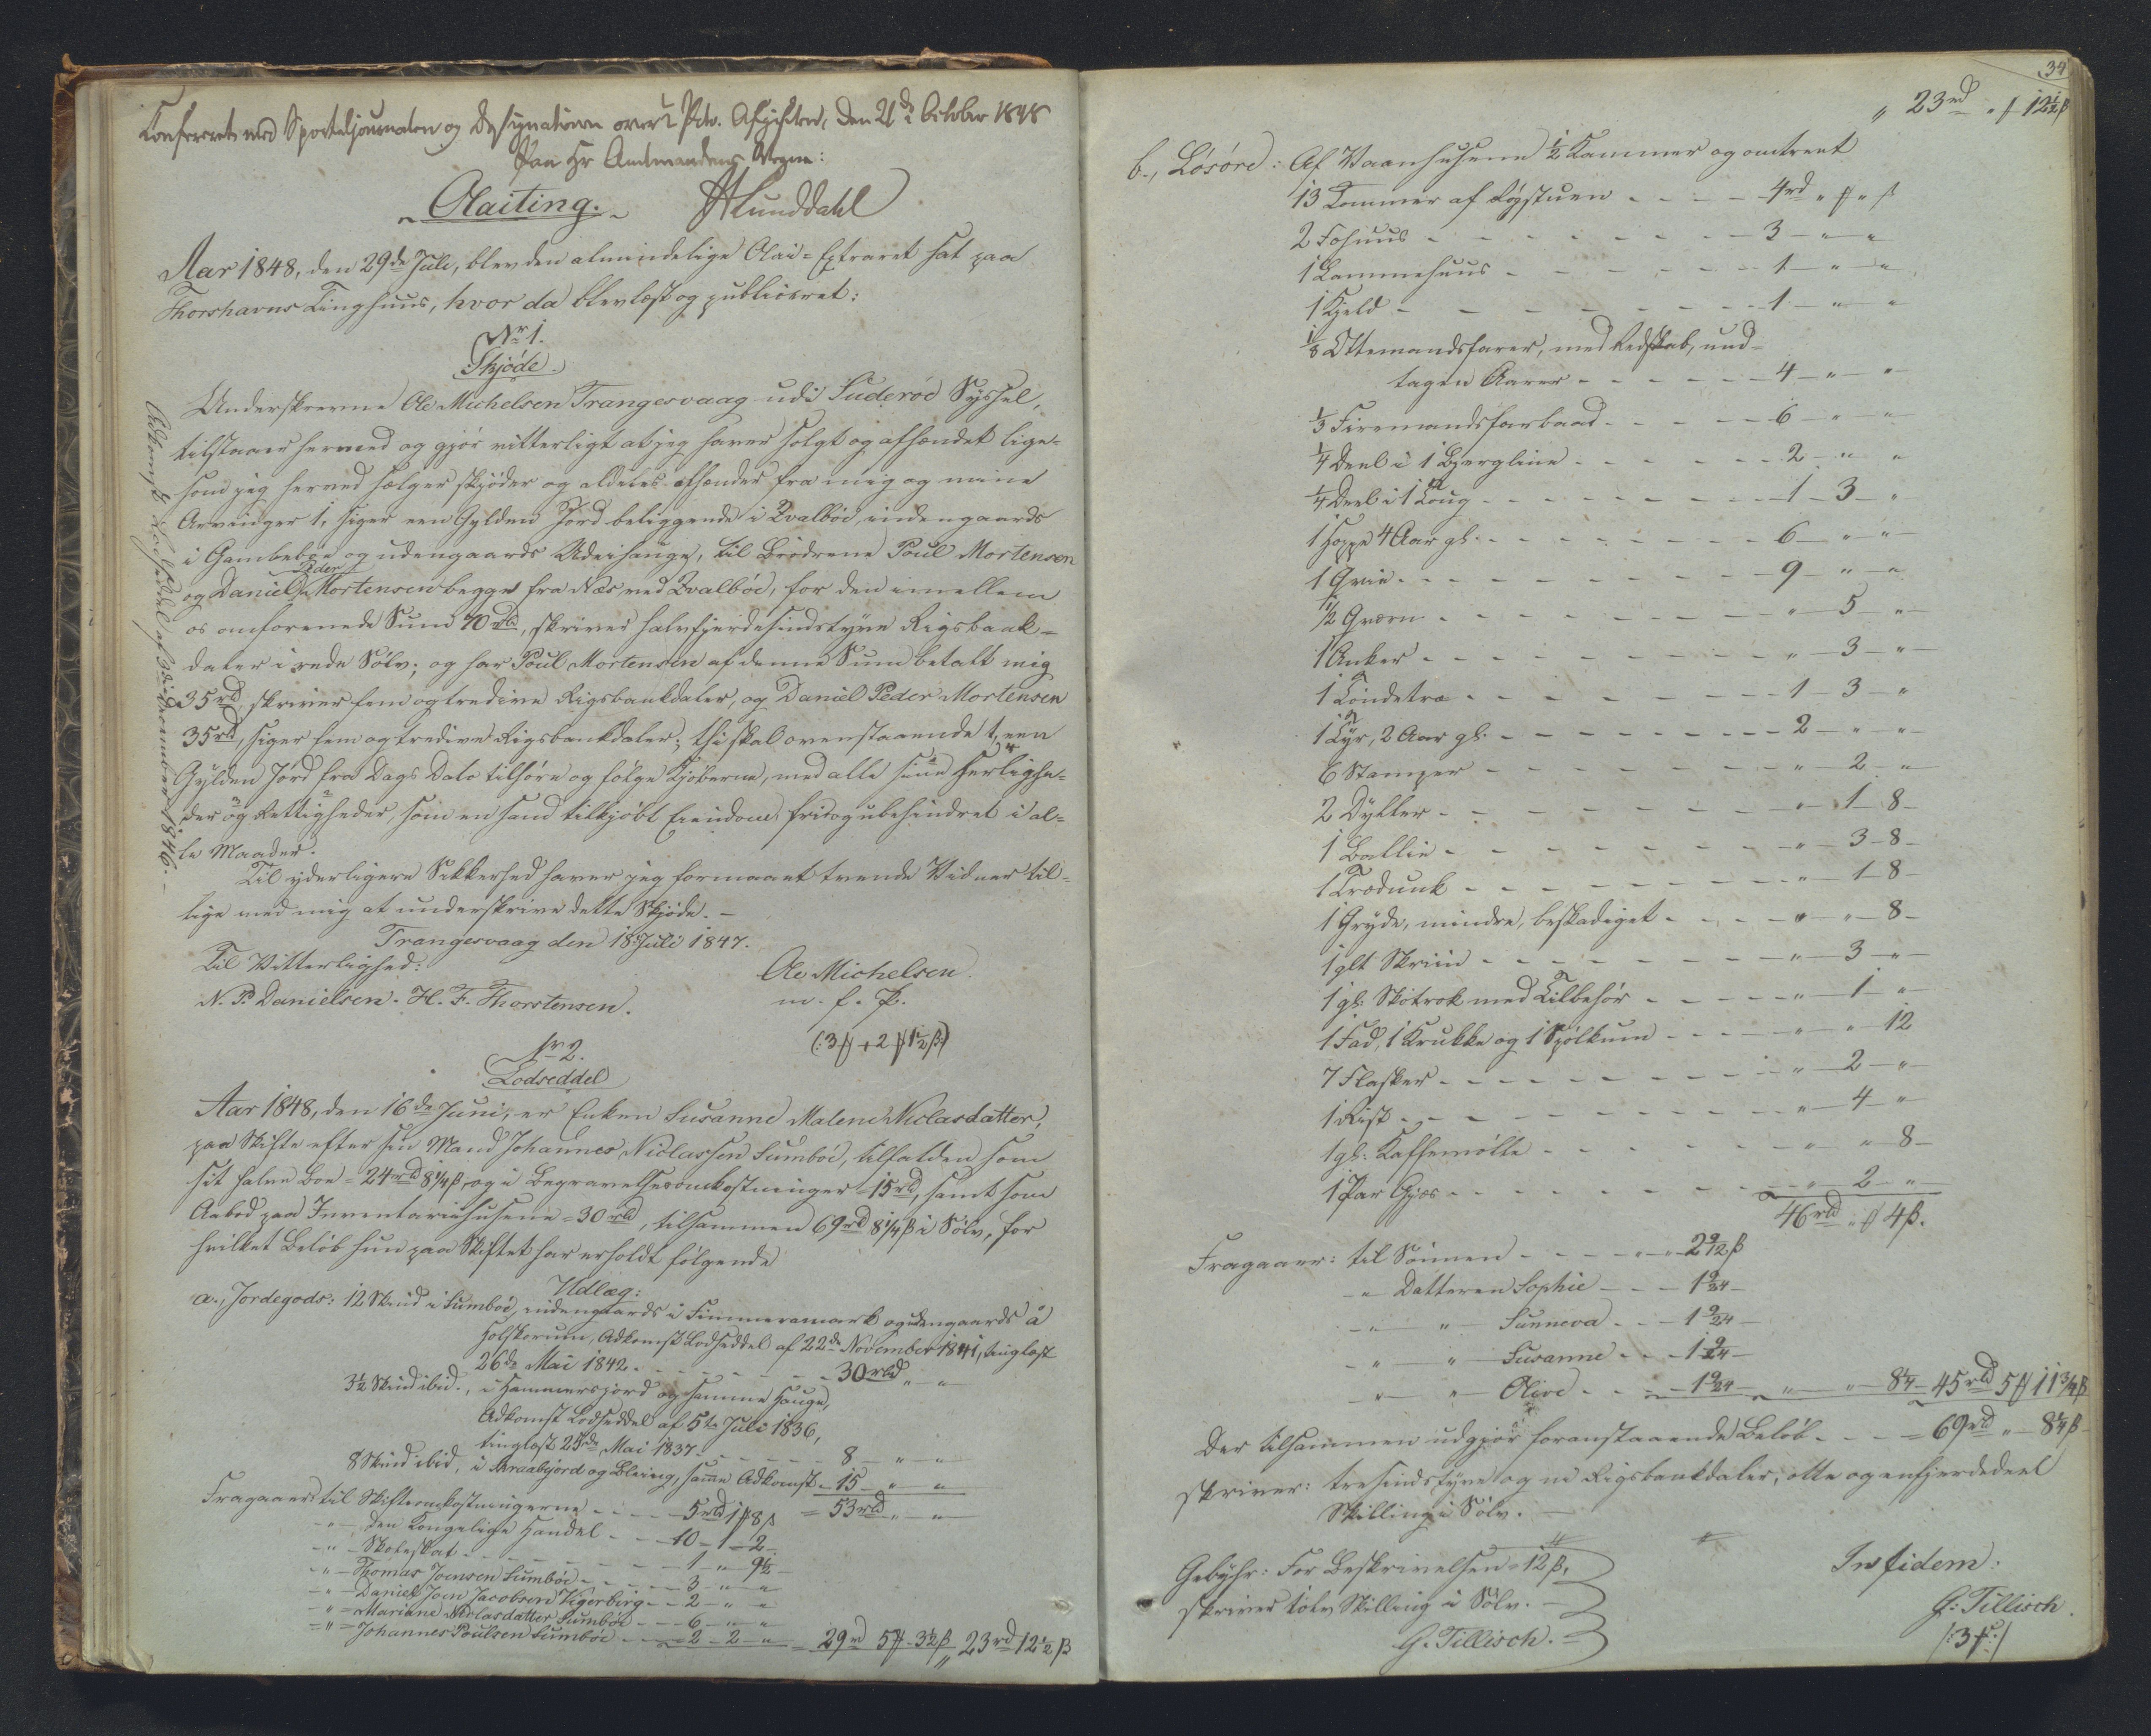 Confereret med Sportuljournalen og Designationen over ½ Pct. Afgiften, den 21de October 1848
Paa Hr Amtmandens Vegne:
HLunddahl
Olaiting.
Aar 1848, den 29de Juli, blev den almindelige Olai-Extraret sat paa
Thorshavns Tinghuus, hvor da blev læst og publiceret:
Nr 1.
Skjøde.
Underskrevne Ole Michelsen Trangesvaag udi Suderöe Syssel,
tilstaaer hermed og gjör vitterligt at jeg haver solgt og afhændet lige-
som jeg herved sælger skjöder og aldeles afhænder fra mig og mine
Arvinger 1, siger een Gylden Jord beliggende i Qvalböe, indengaards
i Gambebøe og udengaards Udeihauge, til Brödrene Poul Mortensen
og Daniel Peder Mortensen begge fra Næs ved Qvalböe, for den imellem
os omforenede Sum 70 rbd, skriver halvfjerdesindstyve Rigsbank-
daler i rede Sölv; og har Poul Mortensen af denne Sum betalt mig
35 rbd, skriver fem og tredive Rigsbankdaler, og Daniel Peder Mortensen
35 rbd, siger fem og tredive Rigsbankdaler; thi skal ovenstaaende 1, een
Gylden Jord fra Dags Dato tilhöre og fölge Kjöberne, med alle sine Herlighe-
der og Rettigheder, som en sand tilkjöbt Eiendom fri og ubehindret i al-
le Maader.
Til yderligere Sikkerhed haver jeg formaaet tvende Vidner til-
lige med mig at underskrive dette Skjöde. —
Trangesvaag den 18 Juli 1847.
Til Vitterlighed:
Ole Michelsen.
N. P. Danielsen. H. F. Thorstensen.
m. f. P.
(:3 ₰ + 2 ₰ 1½ ß:)
Adkomst Lodseddel af 3die December 1846. —
Nr 2.
Lodseddel
Aar 1848, den 16de Juni, er Enken Susanne Malene Niclasdatter,
paa Skifte efter sin Mand Johannes Niclassen Sumböe, tilfalden som
sit halve Boe = 24 rbd 8¼ ß, og i Begravelsesomkostninger = 15 rbd, samt som
Aabod paa Inventariehusene = 30 rbd, tilsammen 69 rbd 8¼ ß i Sölv, for
hvilket Belöb hun paa Skiftet har erholdt fölgende
Udlæg:
a., Jordegods: 12 Skind i Sumböe, indengaards i Simmeramark og udengaards å
Holskorum, Adkomst Lodseddel af 22de November 1841, tinglæst
26de Mai 1842. - - - - - - 30 rbd " — "
3½ Skind ibid., i Hammersjord og samme Hauge,
Adkomst Lodseddel af 5te Juli 1836,
tinglæst 25de Mai 1837. - - - - - 8 — " — "
8 Skind ibid, i Skraabijord og Bleiing, samme Adkomst - 15 — " — "
= 53 rbd " — "
Fragaaer: til Skifteomkostningerne - - - - 5 rbd 1 ₰ 8 ß
— " — den Kongelige Handel - - 10 — 1 — 2 —
— " — Skoleskat - - - - - 1 — " — 9½ —
— " — Thomas Joensen Sumböe - - - 3 — " — "
— " — Daniel Joen Jacobsen Vigerbirg - - 2 — " — "
— " — Mariane Niclasdatter Sumböe - - 6 — " — "
— " — Johannes Poulsen Sumböe - - - 2 — 2 — " = 29 rbd 5 ₰ 3½ ß " 23 rbd 12½ ß
34
" 23 rbd " ₰ 12½ ß
b., Lösöre: Af Vaanhusene ½ Kammer og omtrent
13 Tommer af Røgstuen - - - - 4 rbd " ₰ " ß
2 Fæhuus - - - - - - 3 — " — "
1 Lammehuus - - - - - 1 — " — "
1 Kjeld - - - - - - 1 — " — "
⅛ Ottemandsfarer, med Redskab, und-
tagen Aarer - - - - - 4 — " — "
⅓ Firemandsfarbaad - - - - 6 — " — "
¼ Deel i 1 Bjergline - - - - 2 — " — "
¼ Deel i 1 Toug - - - - - 1 — 3 — "
1 Hoppe 4 Aar gl. - - - - - 6 — " — "
1 Qvie - - - - - - 9 — " — "
½ Qværn - - - - - - " — 5 — "
1 Anker - - - - - - " — 3 — "
1 Töndetræ - - - - - 1 — 3 — "
1 Tyr, 2 Aar gl. - - - - - 2 — " — "
6 Stamper - - - - - " — 2 — "
2 Dyller - - - - - - " — 1 — 8 —
1 Ballie - - - - - - " — 3 — 8 —
1 Trædunk - - - - - " — 1 — 8 —
1 Gryde, mindre, beskadiget - - - - " — " — 8 —
1 glt Skriin - - - - - " — 3 — " —
1 gl. Skotrok med Tilbehör - - - - " — 1 — "
1 Fad, 1 Krukke og 1 Spölkum - - - - " — " — 12
7 Flasker - - - - - - " — 2 — " —
1 Rist - - - - - - " — 4 — "
1 gl. Kaffemölle - - - - - " — " — 8 —
1 Par - - - - - " — 2 — " —
46 rbd " ₰ 4 ß.
Fragaaer: til Sönnen - - - - " — " — 2 9/12 ß
— " — Datteren Sophie - - - 1 9/24 —
— " — " — Sunneva - - - 1 9/24 —
— " — " — Susanne - - - 1 9/24 —
— " — " — Olive - - - 1 9/24 — " — " — 8¼ — 45 rbd 5 ₰ 11¾ ß
Der tilsammen udgjör foranstaaende Belöb - - - = 69 rbd " — 8¼ ß —
skriver: tresindstyve og ni Rigsbankdaler, otte og enfjerdedeel
Skilling i Sölv. —
Gebyhr: For Beskrivelsen = 12 ß,
skriver tolv Skilling i Sölv. —
G. Tillisch. —
In fidem:
G. Tillisch.
(:3 ₰:)